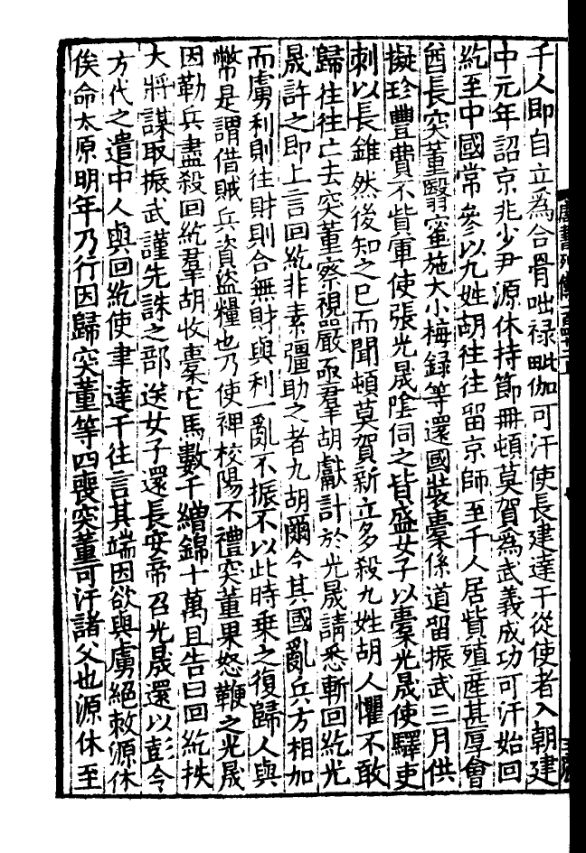 千人即自立爲合骨咄祿毗伽可汗使長建達干從使者入朝建
中元年詔京兆少尹源休持節冊頓莫賀為武義成功可汗始回
紇至中國常參以九姓胡往往留京師至千人居貲殖産甚厚會
酋長突董翳蜜施大小梅録等還國裝橐係道留振武三月供
擬珍豐費不貲軍使張光晟陰伺之皆盛女子以橐光晟使驛吏
刺以長錐然後知之已而聞頓莫賀新立多殺九姓胡人懼不敢
歸往往亡去突董察視嚴亟羣胡獻計於光晟請悉斬回紇光
晟許之即上言回紇非素彊助之者九胡爾今其國亂兵方相加
而虜利則往財則合無財與利一亂不振不以此時乗之復歸人與
幣是謂借賊兵資盜糧也乃使裨校陽不禮突董果怒鞭之光晟
因勒兵盡殺回紇羣胡收橐它馬數千繒錦十萬且告曰回紇抶
大將謀取振武謹先誅之部送女子還長安帝召光晟還以彭令
方代之遣中人與回紇使聿達干往言其端因欲與虜絕敕源休
俟命太原明年乃行因歸突董等四喪突董可汗諸父也源休至